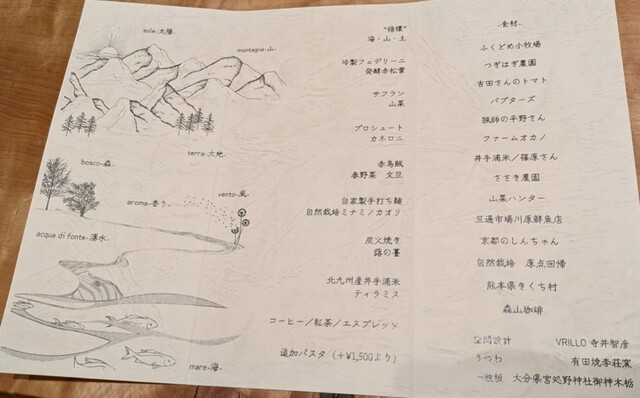 sole-太陽-
montagna-山-
terra-大地-
bosco-森-
aroma-香り-
vento-風-
acqua di fonte-湧水-
mare-海-
“循環”
海・山・土
冷製フェデリーニ
発酵赤松葉
サフラン
山菜
プロシュート
カネロニ
赤烏賊
春野菜 文旦
自家製手打ち麺
自然栽培ミナミノカオリ
炭火焼き
蕗の薹
北九州産井手浦米
ティラミス
コーヒー/紅茶/エスプレッソ
追加パスタ(+¥1,500より)
-食材-
ふくどめ小牧場
つぎはぎ農園
吉田さんのトマト
バブターズ
猟師の平野さん
ファームオカノ
井手浦米/篠原さん
ささき農園
山菜ハンター
旦過市場川原鮮魚店
京都のしんちゃん
自然栽培 原点回帰
熊本県きくち村
森山珈琲
空間設計 VRILLO 寺井智彦
うつわ 有田焼李荘窯
一枚板 大分県宮処野神社御神木栃